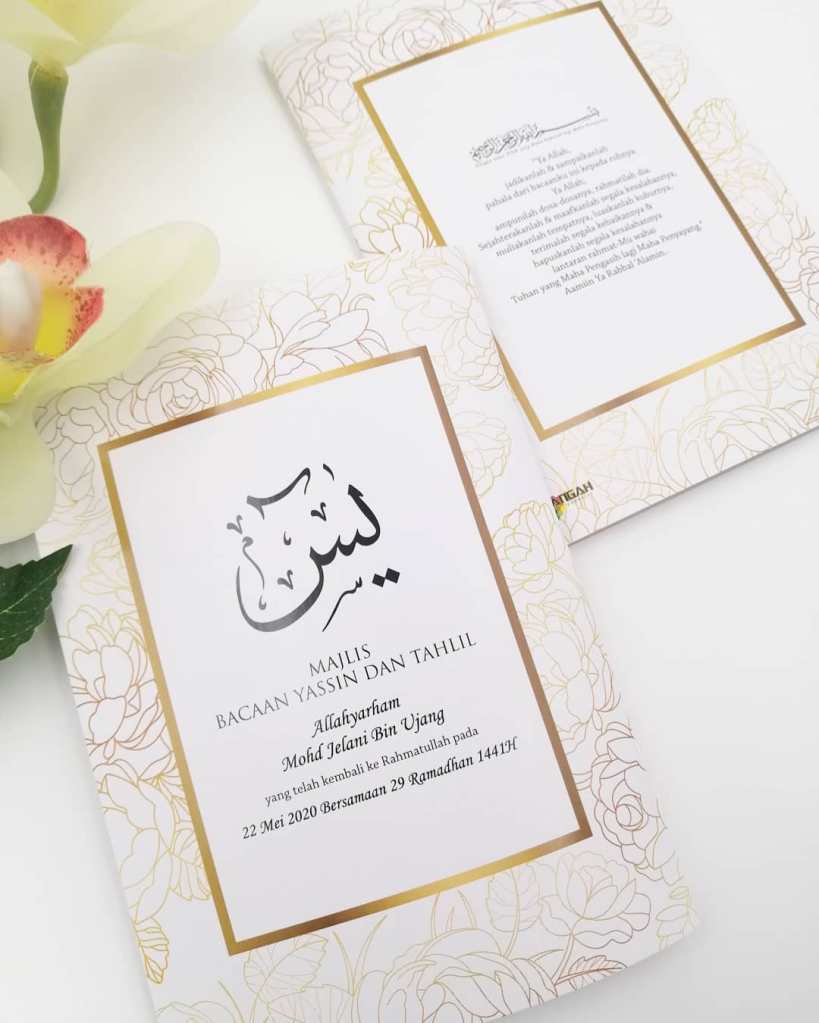 يس
MAJLIS
BACAAN YASSIN DAN TAHLIL
Allahyarham
Mohd Jelani Bin Ujang
yang telah kembali ke Rahmatullah pada
22 Mei 2020 Bersamaan 29 Ramadhan 1441H
بسم الله الرحمن الرحيم
"Ya Allah,
jadikanlah & sampaikanlah
pahala dari bacaanku ini kepada rohnya
Ya Allah,
ampunilah dosa-dosanya, rahmatilah dia,
Sejahterakanlah & maafkanlah segala kesalahannya,
muliakanlah tempatnya, luaskanlah kuburnya,
terimalah segala kebaikannya &
hapuskanlah segala kesalahannya
lantaran rahmat-Mu wahai
Tuhan yang Maha Pengasih lagi Maha Penyayang."
Aamiin Ya Rabbal 'Alamin..